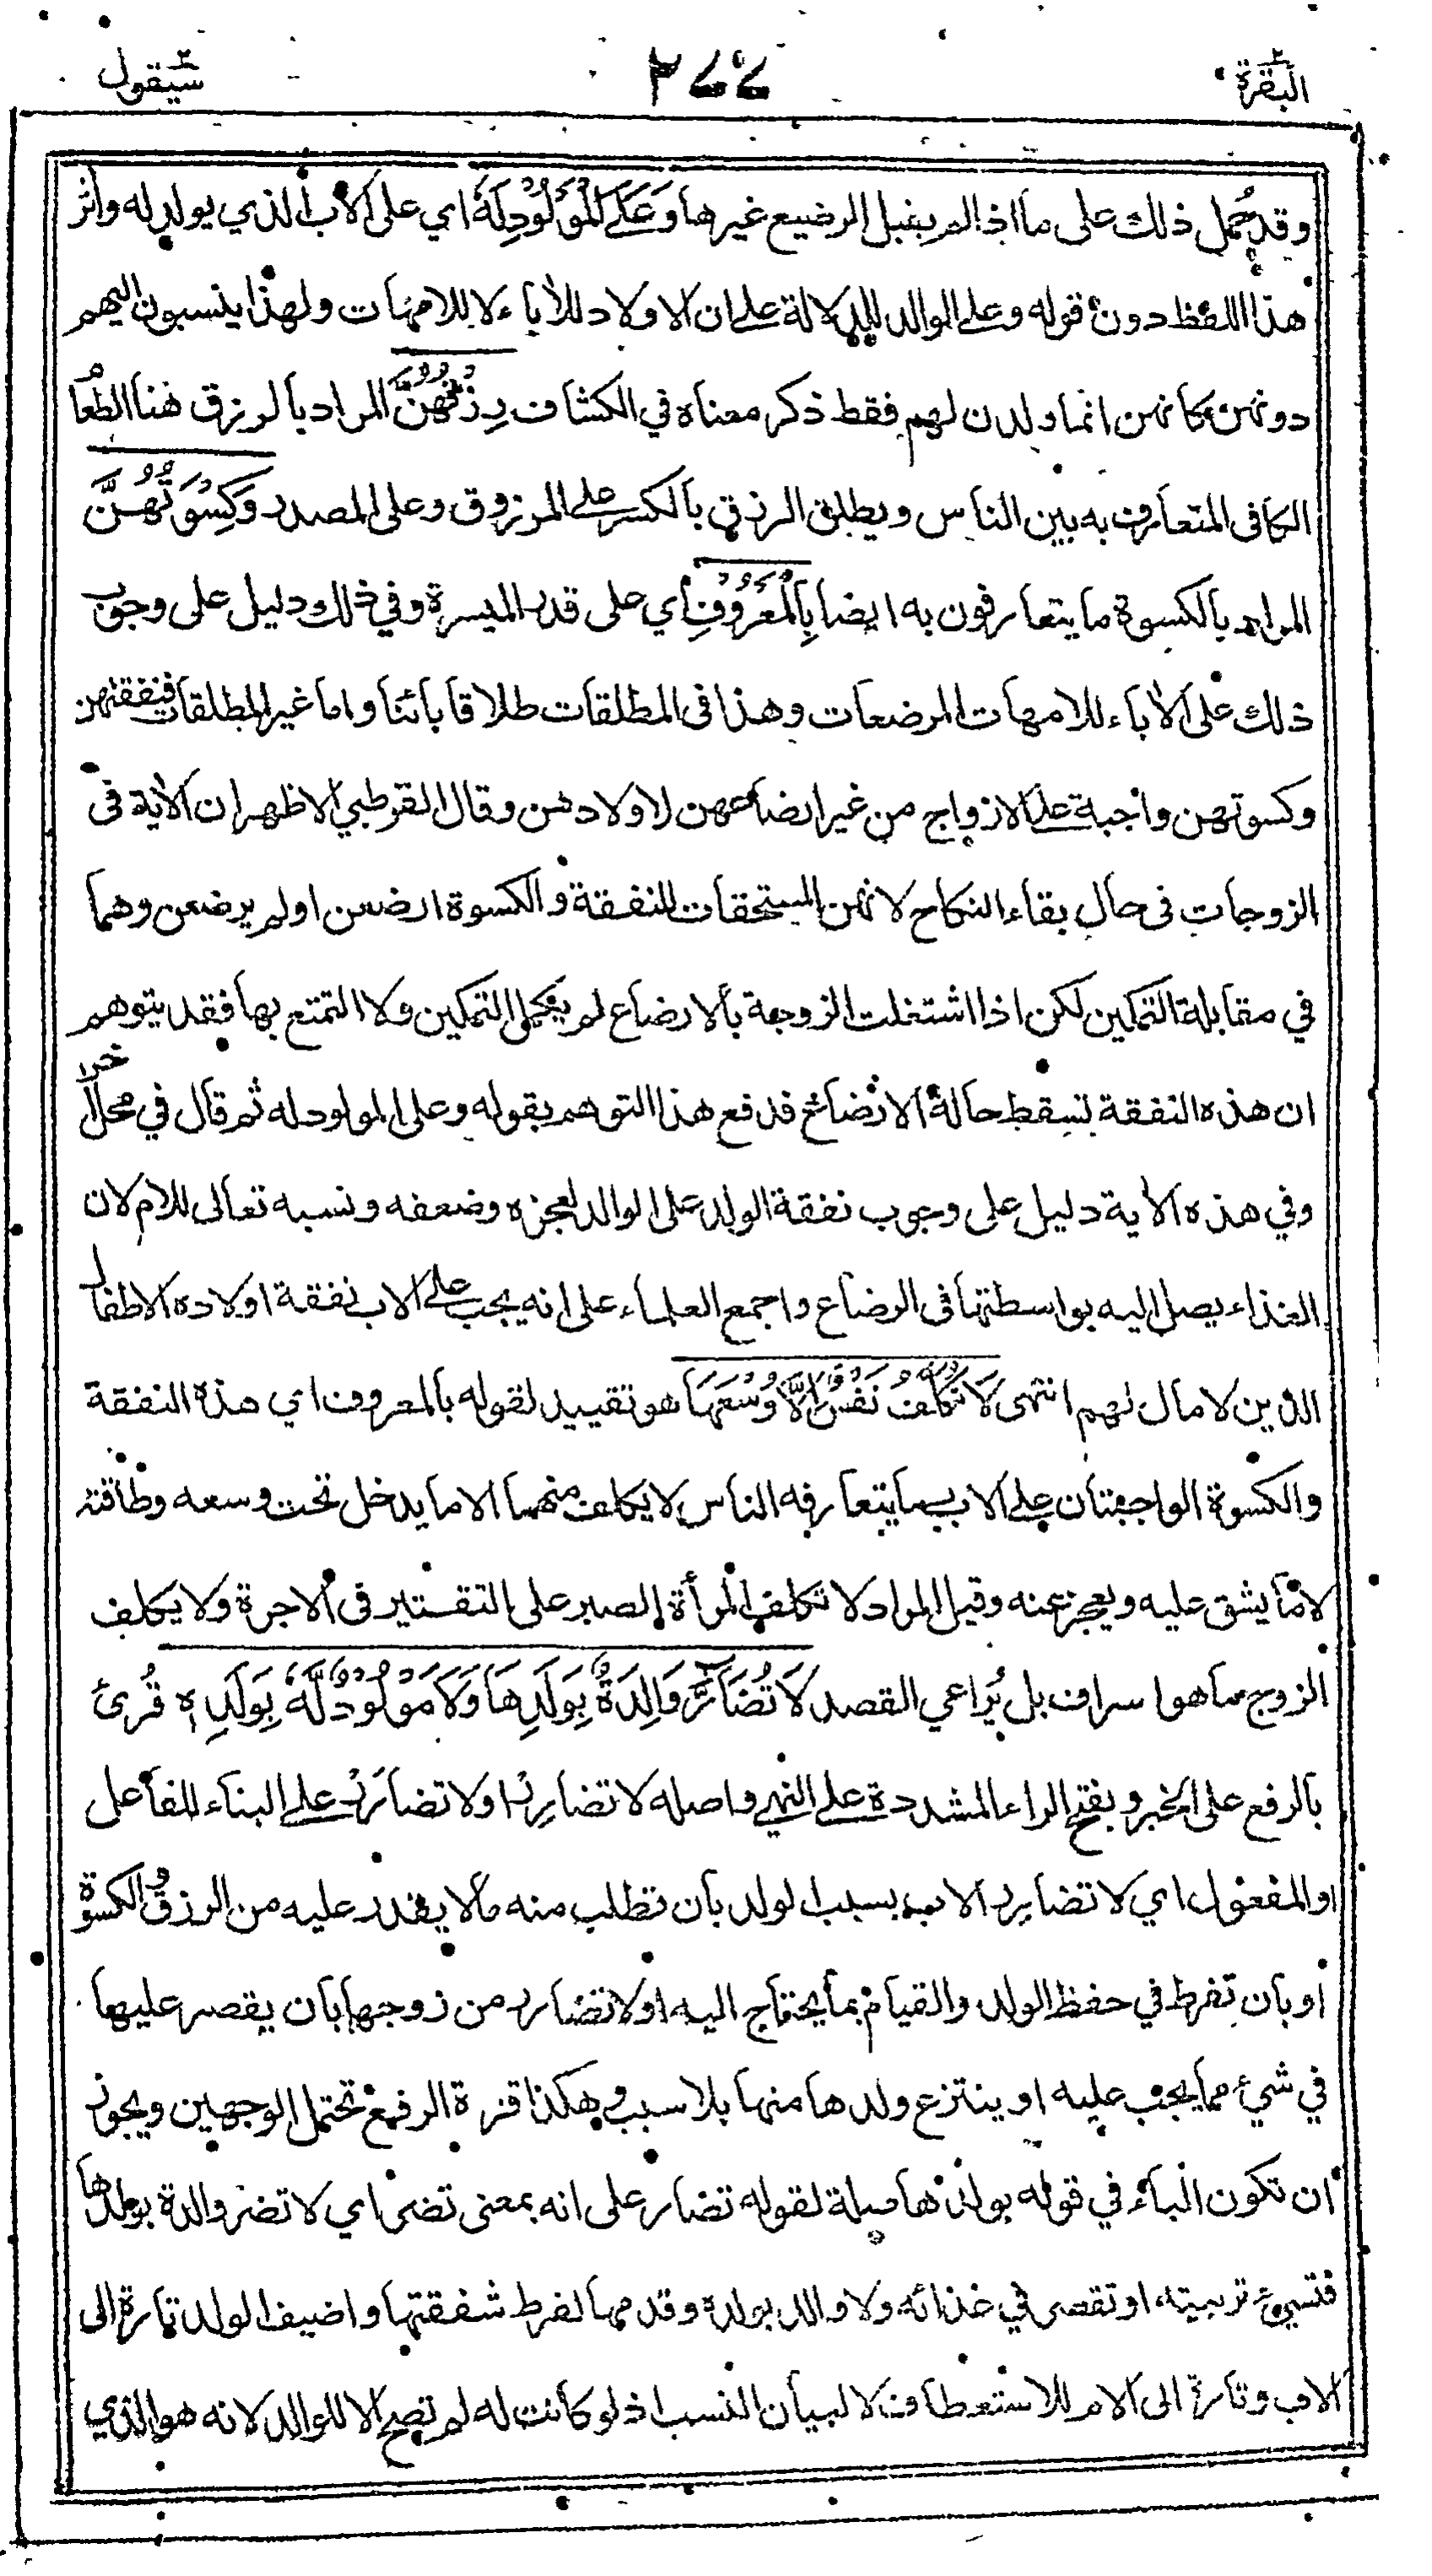 البقرة ٢
٢٧٤
سيقول ٢
وقد حُمل ذلك على ما اذا لم يقبل الرضيع غيرها وَعَلَى الْمَوْلُودِ لَهُ اي على الأب الذي يولد له واٰثر
هذا اللفظ دون قوله وعلى الوالد للدلالة على ان الاولاد للاٰباء لا للامهات ولهذا ينسبون اليهم
دونهن كانهن انما ولدن لهم فقط ذكر معناه في الكشاف رِزْقُهُنَّ المراد بالرزق هنا الطعام
الكافى المتعارف به بين الناس ويطلق الرزق بالكسر على المرزوق وعلى المصدر وَكِسْوَتُهُنَّ
المراد بالكسوة ما يتعارفون به ايضا بِالْمَعْرُوفِ اي على قدر الميسرة وفي ذلك دليل على وجوب
ذلك على الاٰباء للامهات المرضعات وهذا فى المطلقات طلاقا بائنا واما غير المطلقات فنفقتهن
وكسوتهن واجبة على الازواج من غير ارضاعهن لاولادهن وقال القرطبي الاظهر ان الاٰية فى
الزوجات فى حال بقاء النكاح لانهن المستحقات للنفقة والكسوة ارضعن او لم يرضعن وهما
في مقابلة التمكين لكن اذا اشتغلت الزوجة بالارضاع لم يكمل التمكين ولا التمتع بها فقد يتوهم
ان هذه النفقة تسقط حالة الارضاع فدفع هذا التوهم بقوله وعلى المولود له ثم قال في محل اٰخر
وفي هذه الاٰية دليل على وجوب نفقة الولد على الوالد لعجزه وضعفه ونسبه تعالى للام لان
الغذاء يصل اليه بواسطتها فى الرضاع واجمع العلماء على انه يجب على الاب نفقة اولاده الاطفال
الذين لا مال لهم انتهى لَا تُكَلَّفُ نَفْسٌ اِلَّا وُسْعَهَا هو تقييد لقوله بالمعروف اي هذه النفقة
والكسوة الواجبتان على الاب بما يتعارفه الناس لا يكلف منهما الا ما يدخل تحت وسعه وطاقته
لا ما يشق عليه ويعجز عنه وقيل المراد لا تكلف المرأة الصبر على التقتير فى الاجرة ولا يكلف
الزوج ما هو اسراف بل يُراعي القصد لَا تُضَآرَّ وَالِدَةٌ بِوَلَدِهَا وَلَا مَوْلُودٌ لَّهُ بِوَلَدِهٖ قُرئ
بالرفع على الخبر وبفتح الراء المشددة على النهي واصله لا تضارِرْ او لا تضارَرْ على البناء للفاعل
او المفعول اي لا تضارِر الاب بسبب الولد بان تطلب منه ما لا يقدر عليه من الرزق والكسوة
او بان تفرط في حفظ الولد والقيام بما يحتاج اليه او لا تضارر من زوجها بان يقصر عليها
في شيء مما يجب عليه او ينتزع ولدها منها بلا سبب وهكذا قرءة الرفع تحتمل الوجهين ويجوز
ان تكون الباء في قوله بولدها صلة لقوله تضار على انه بمعنى تضر اي لا تضر والدة بولدها
فتسيء تربيته او تقصر في غذائه ولا والد بولده وقدمها لفرط شفقتها واضيف الولد تارة الى
الاب وتارة الى الام للاستعطاف لا لبيان النسب اذ لو كانت له لم تصح الا للوالد لانه هو الذي